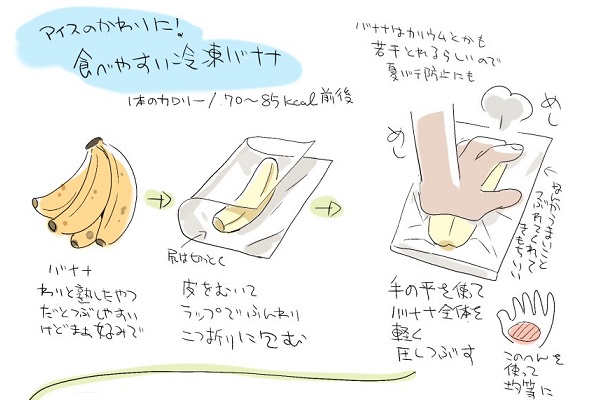 アイスのかわりに!
食べやすい冷凍バナナ
1本のカロリー/70〜85kcal前後
バナナはカリウムとかも
若干とれるらしいので
夏バテ防止にも
バナナ
わりと熟したやつ
だとつぶしやすい
けどまぁお好みで
尻は切っとく
皮をむいて
ラップでふんわり
二つ折りに包む
めし
めし
←なかがうまいこと
つぶれてくれて
きもちいい
手の平を使って
バナナ全体を
軽く
圧しつぶす
このへんを
使って
均等に